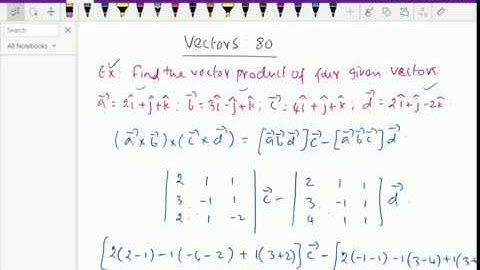 Search
All Notebooks
Vectors: 80
Ex: Find the vector product of four given vectors
a⃗ = 2î+ĵ+k̂ ; b⃗ = 3î-ĵ+k̂ ; c⃗ = 4î+ĵ+k̂ ; d⃗ = 2î+ĵ-2k̂
(a⃗×b⃗)×(c⃗×d⃗) = [a⃗ b⃗ d⃗]c⃗ - [a⃗ b⃗ c⃗]d⃗
| 2 1 1 | c⃗ - | 2 1 1 | d⃗
| 3 -1 1 | | 3 -1 1 |
| 2 1 -2 | | 4 1 1 |
[2(2-1)-1(-6-2)+1(3+2)]c⃗ - [2(-1-1)-1(3-4)+1(3+